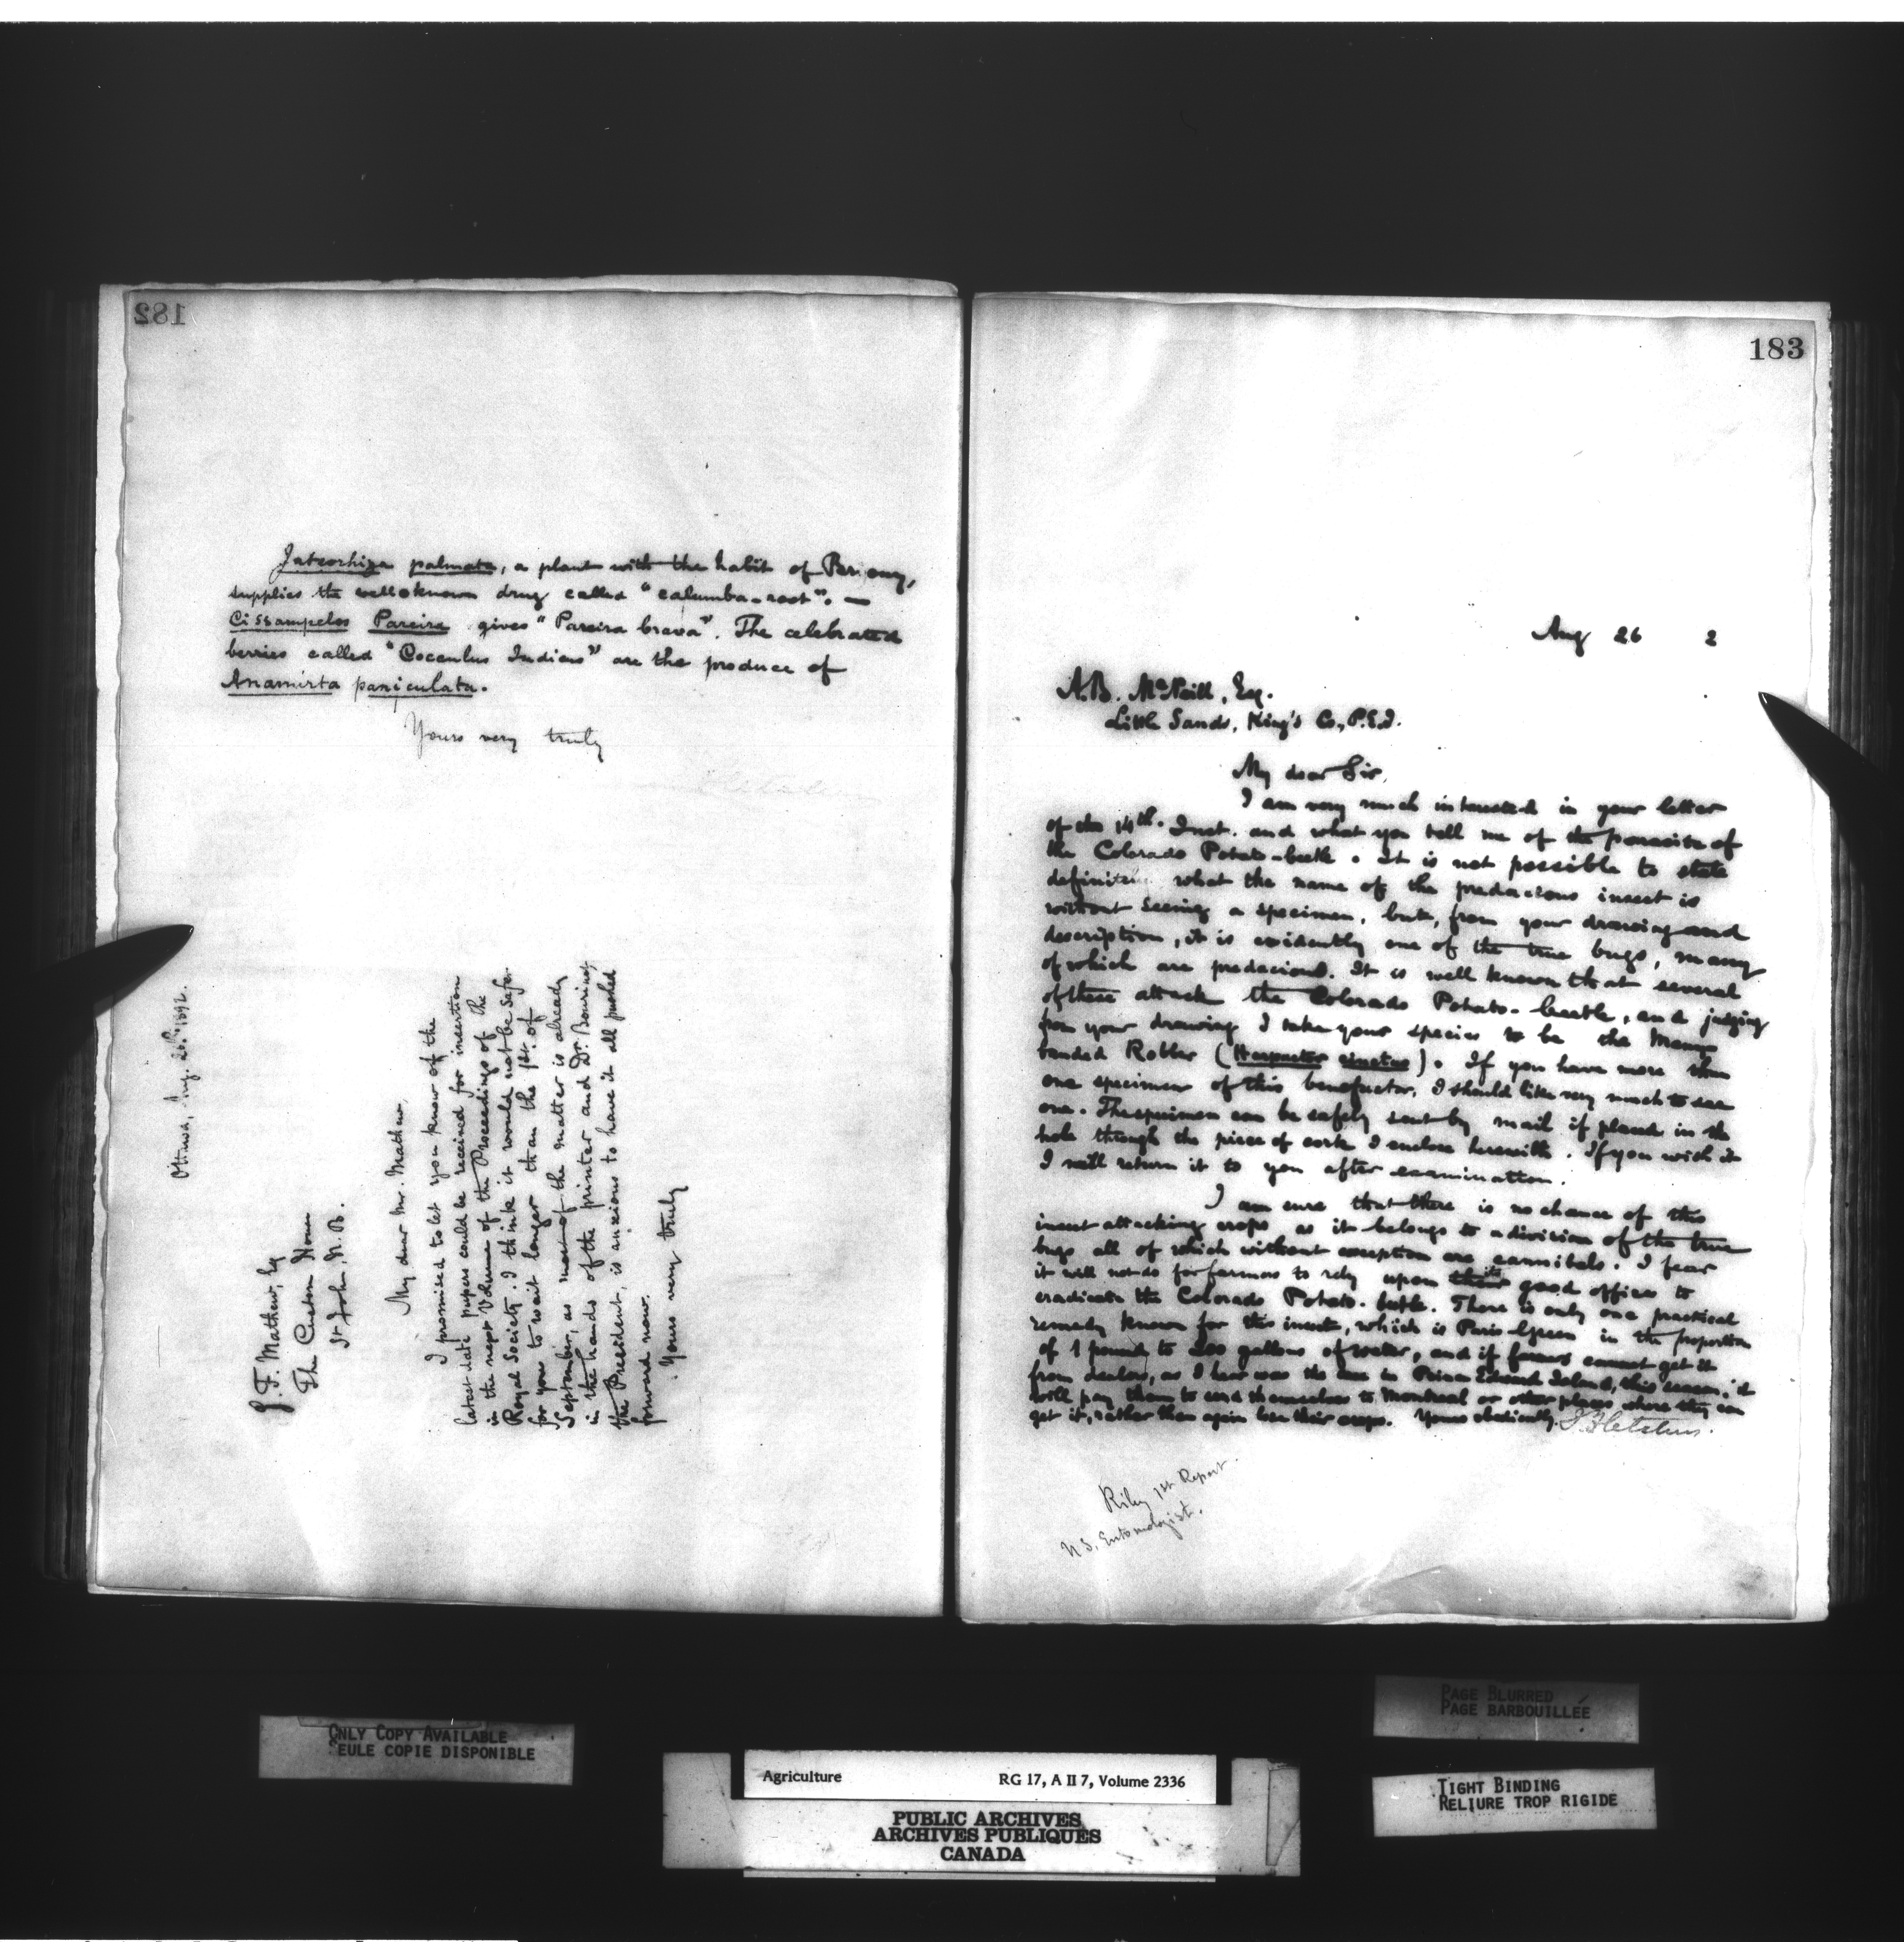 182
Jateorhiza palmata, a plant with the habit of Bryony,
supplies the well known drug called "calumba-root". —
Cissampelos Pareira gives "Pareira brava". The celebrated
berries called "Cocculus Indicus" are the produce of
Anamirta paniculata.
Yours very truly
Ottawa, Aug. 26th 1892.
G. F. Mathew, Esq
The Custom House
St John, N. B.
My dear Mr. Mathew,
I promised to let you know of the
latest date papers could be received for insertion
in the next Volume of the Proceedings of the
Royal Society. I think it would not be safe
for you to wait longer than the 1st. of
September, as most of the matter is already
in the hands of the printer and Dr. Bourinot,
the President, is anxious to have it all pushed
forward now.
Yours very truly
183
Aug 26 2
A. B. McNeill, Esq.
Little Sands, King's Co., P.E.I.
My dear Sir,
I am very much interested in your letter
of the 14th. Inst. and what you tell me of the parasite of
the Colorado Potato-beetle. It is not possible to state
what the name of the predacious insect is
without seeing a specimen, but, from your drawing and
description, it is evidently one of the true bugs, many
of which are predacious. It is well known that several
of these attack the Colorado Potato-beetle, and judging
from your drawing I take your species to be the Many
banded Robber (Harpactor cinctus). If you have more than
one specimen of this benefactor, I should like very much to see
one. The specimen can be safely sent by mail if placed in the
hole through the piece of cork I enclose herewith. If you wish it
I will return it to you after examination.
I am sure that there is no chance of this
insect attacking crops as it belongs to a division of the true
bugs all of which without exception are cannibals. I fear
it will not do for farmers to rely upon good offices to
eradicate the Colorado Potato-beetle. There is only one practical
remedy known for this insect, which is Paris Green in the proportion
of 1 pound to 200 gallons of water, and if farmers cannot get it
from dealers, as I hear was the case in Prince Edward Island, this season, it
will pay them to send themselves to Montreal or other places where they can
get it, rather than again lose their crops. Yours obediently,
J. Fletcher.
Riley 1st Report.
N S. Entomologist.
ONLY COPY AVAILABLE
SEULE COPIE DISPONIBLE
PAGE BLURRED
PAGE BARBOUILLÉE
Agriculture RG 17, A II 7, Volume 2336
TIGHT BINDING
RELIURE TROP RIGIDE
PUBLIC ARCHIVES
ARCHIVES PUBLIQUES
CANADA